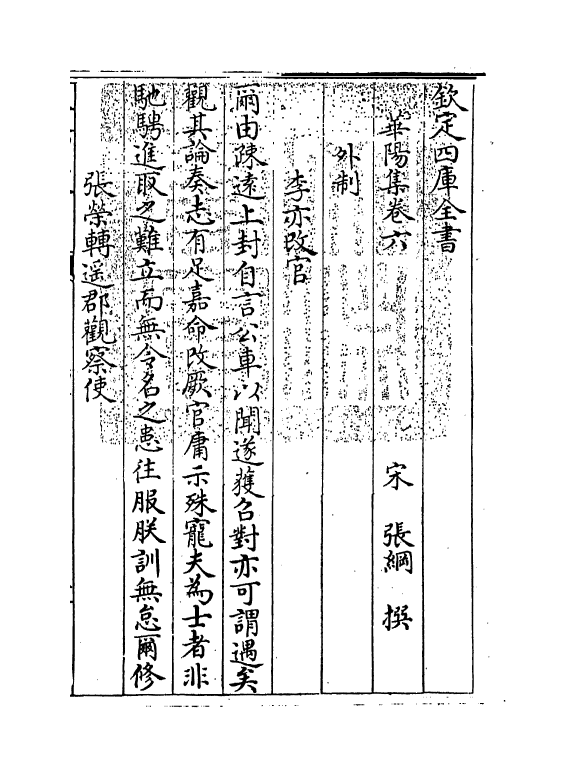 欽定四庫全書
華陽集卷六
宋 張綱 撰
外制
李亦改官
爾由疎遠上封自言公車以聞遂獲召對亦可謂遇矣
觀其論奏志有足嘉命改厥官庸示殊寵夫為士者非
馳騁進取之難立而無令名之患往服朕訓無怠爾修
張榮轉遥郡觀察使